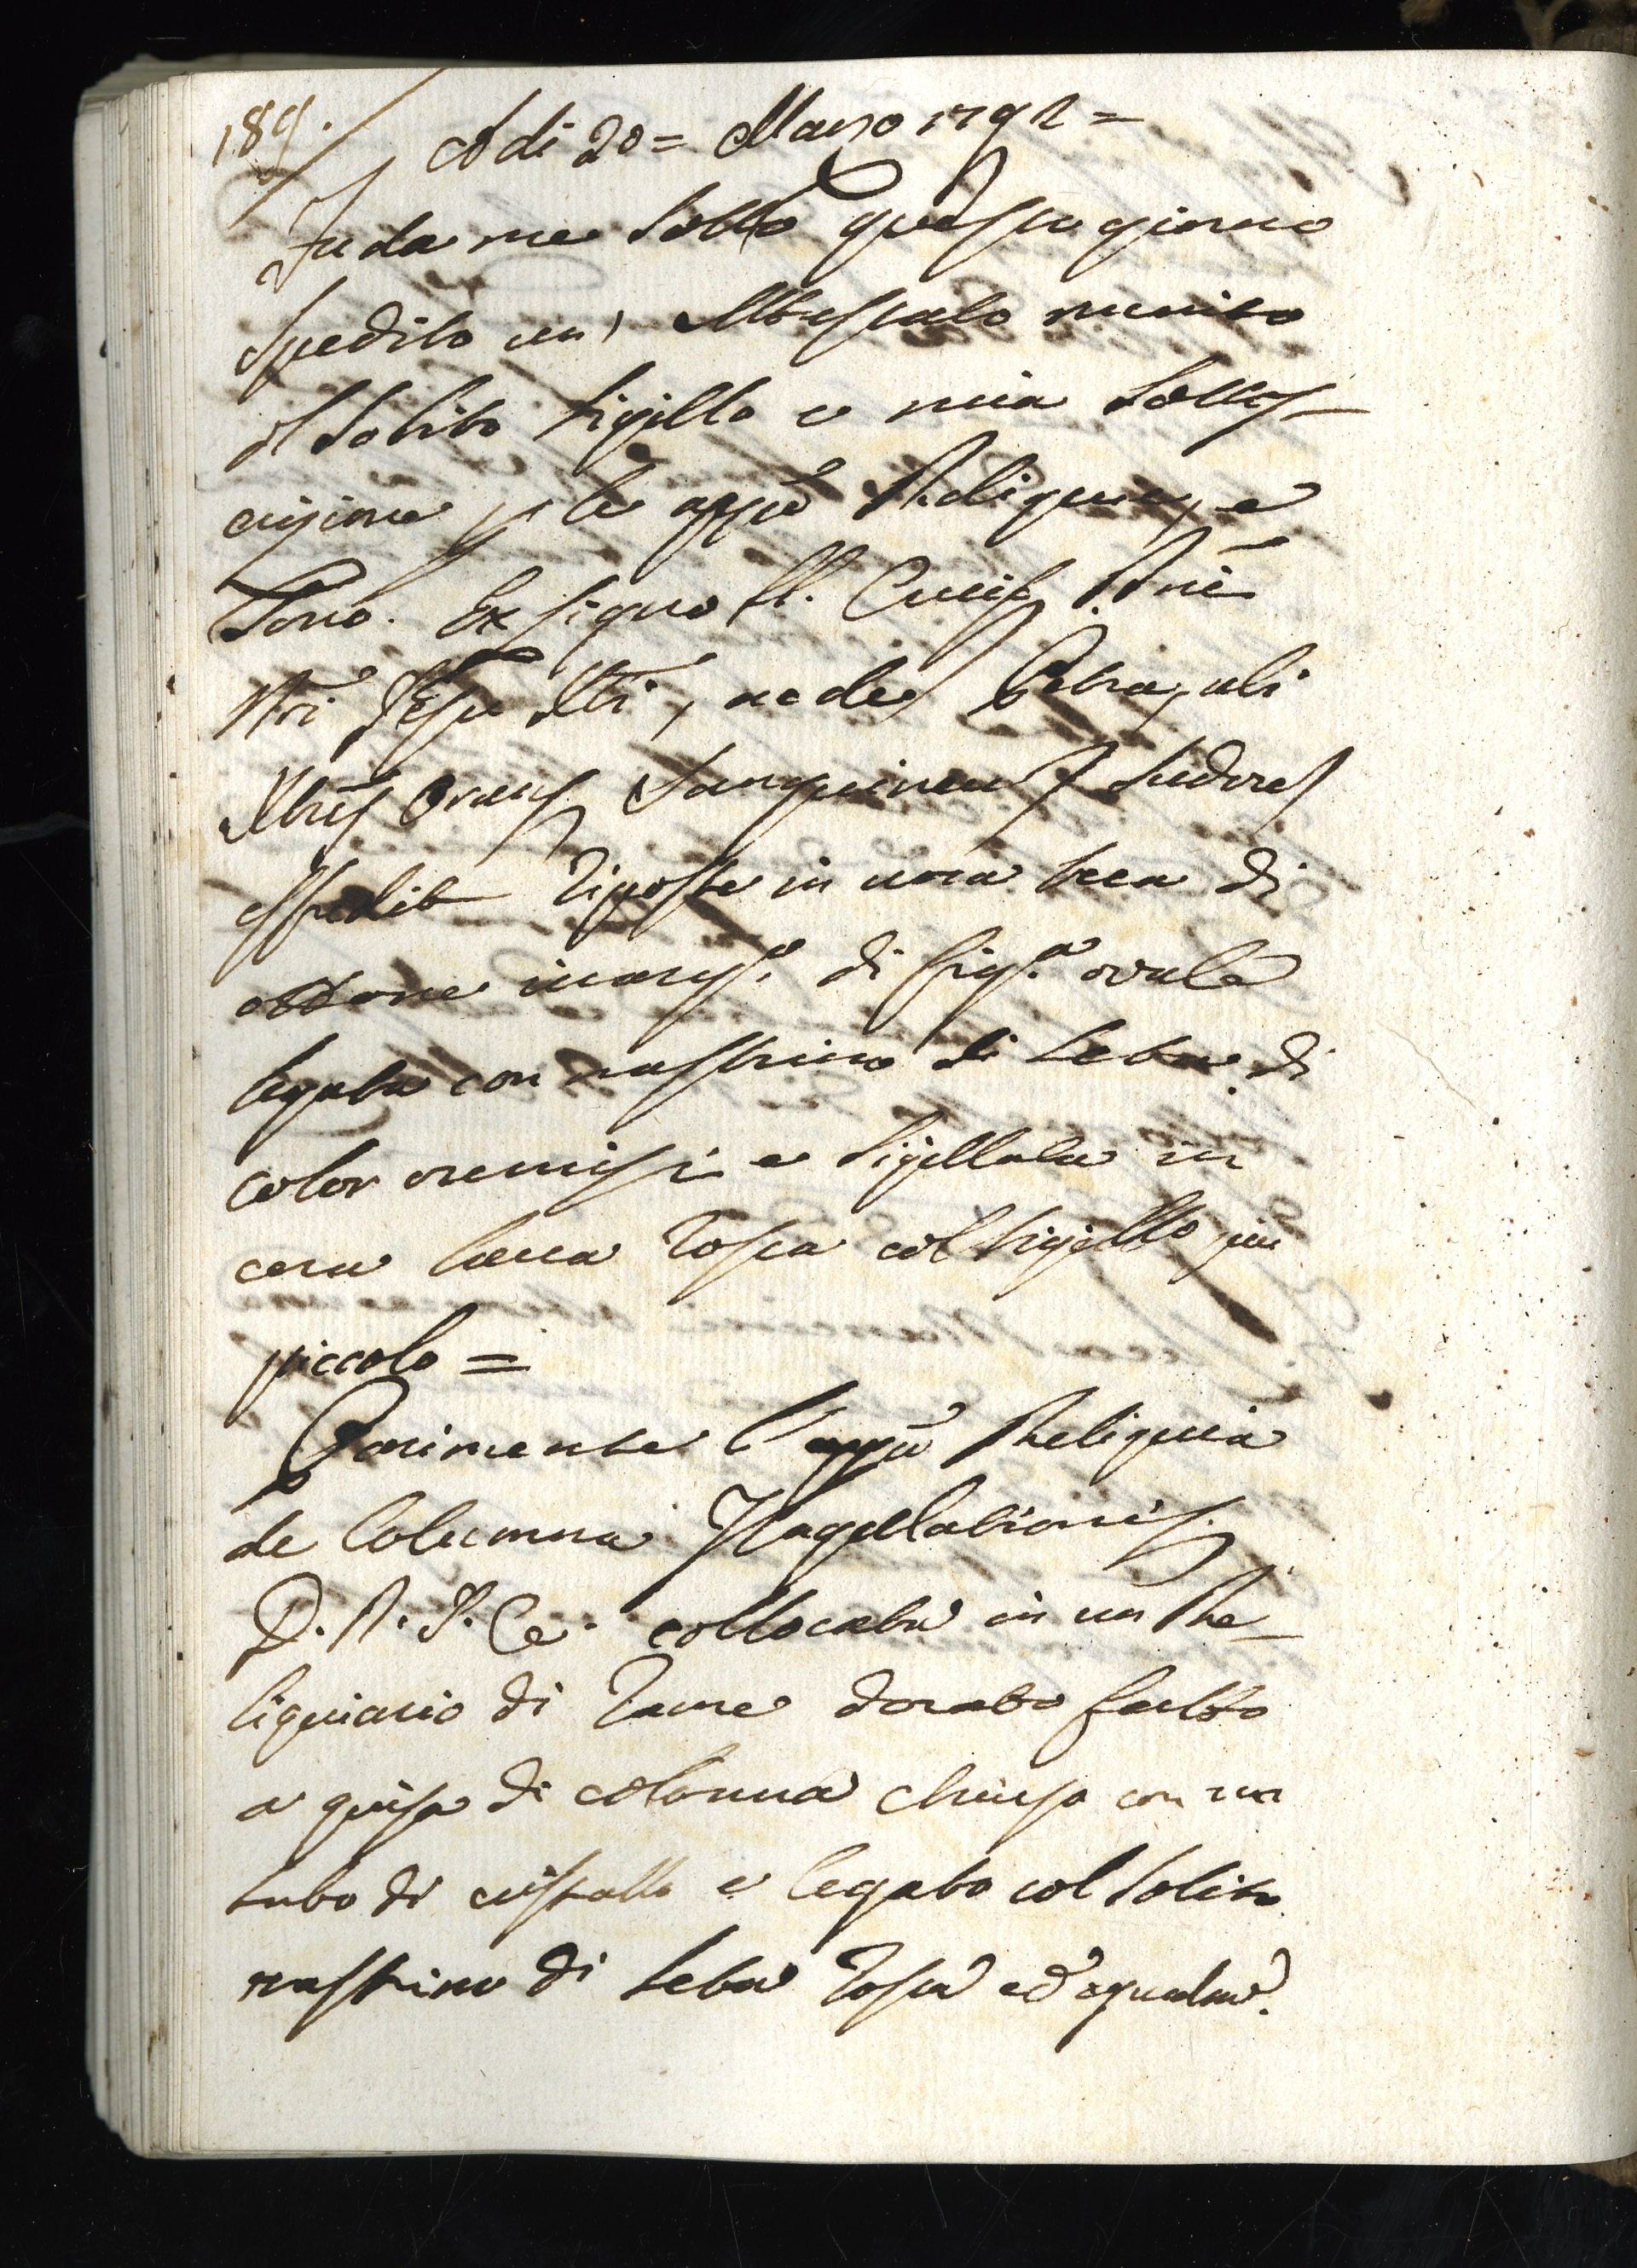 189.
A di 20 = Marzo 1792 =
Fu da me sotto questo giorno
spedito un' Attestato munito
il solito sigillo e mia sottos-
crizione p le appñe Reliquie, e
sono. Ex Ligno SS. Crucis Dñi
Nři Jesu Xti, ac de Petra, ubi
Xtus Orans Sanguineus Sudores
effudit riposte in una teca di
ottone inarg.o di fig.a ovale
legata con nastrino di seta di
color cremisi e sigillata in
cera lacca rossa col sigillo più
piccolo =
Parimente l'appñ Reliquia
de Columna Flagellationis
D. N. J. C. collocata in un Re-
liquiario di rame dorato fatto
a guisa di colonna chiuso con un
tubo di cristallo e legato col solito
nastrino di seta rossa ed egualmē.